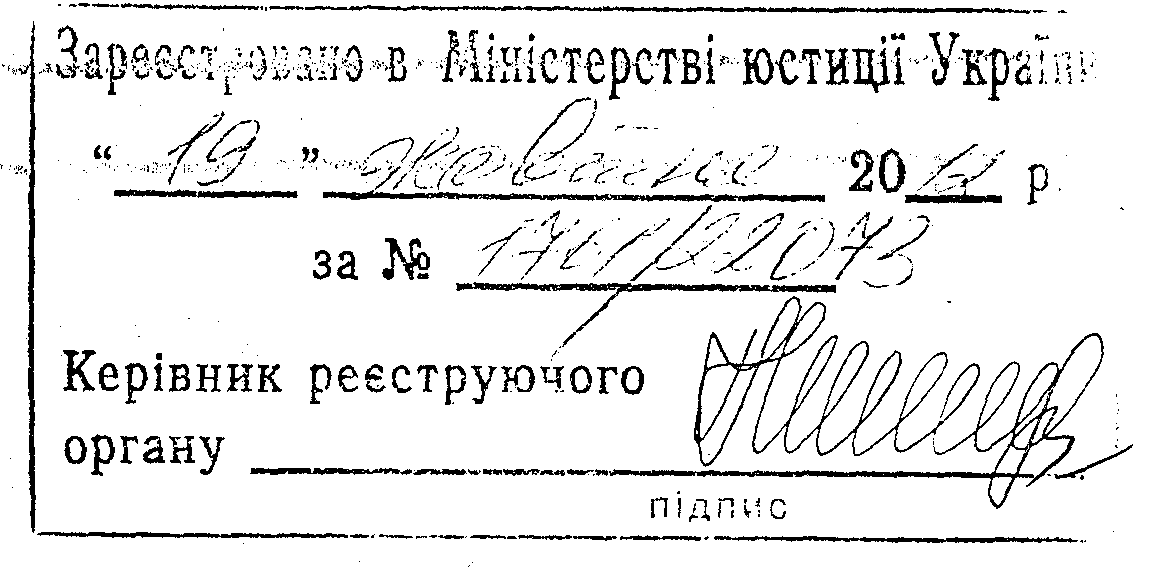 Зареєстровано в Міністерстві юстиції України
“ 19 ” жовтня 2012 р.
за № 1761/22073
Керівник реєструючого
органу
підпис